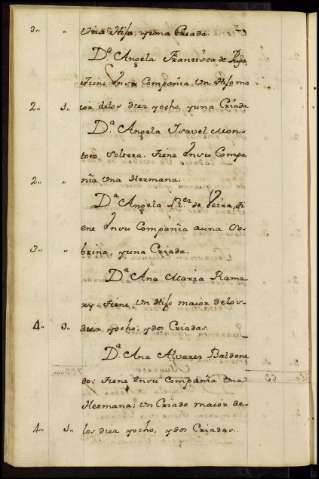 3. " una Hija, y una Criada.
D.ª Angela Francisca de
tiene en su Compañia, Un Hijo ma
2. 1. ior delos diez yocho, y una Criada
D.ª Angela Ysavel Mon
toro, Soltera, tiene en su Compa
2. " ñia Una Hermana.
D.ª Angela R.ez de Veira, ti
ene en su Compañia auna So
3. " brina, y una Criada.
D.ª Ana Maria Rami
rez tiene, Un Hijo maior delos
4. diez yocho, y dos Criadas
D.ª Ana Alvarez Baldone
do; tiene en su Compañia Una
Hermana; Un Criado maior de
4. 1. los diez yocho, y dos Criadas.